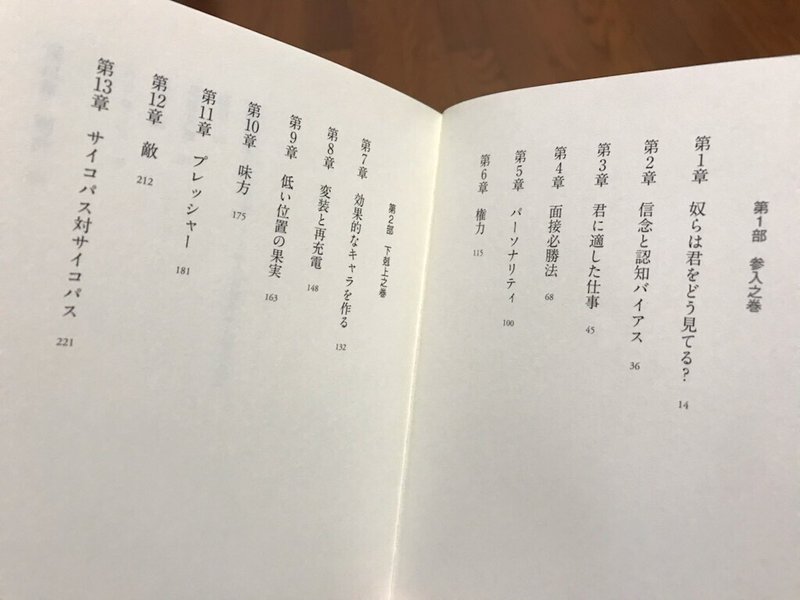 第1部 参入之巻
第1章 奴らは君をどう見てる? 14
第2章 信念と認知バイアス 36
第3章 君に適した仕事 45
第4章 面接必勝法 68
第5章 パーソナリティ 100
第6章 権力 115
第2部 下剋上之巻
第7章 効果的なキャラを作る 132
第8章 変装と再充電 148
第9章 低い位置の果実 163
第10章 味方 175
第11章 プレッシャー 181
第12章 敵 212
第13章 サイコパス対サイコパス 221